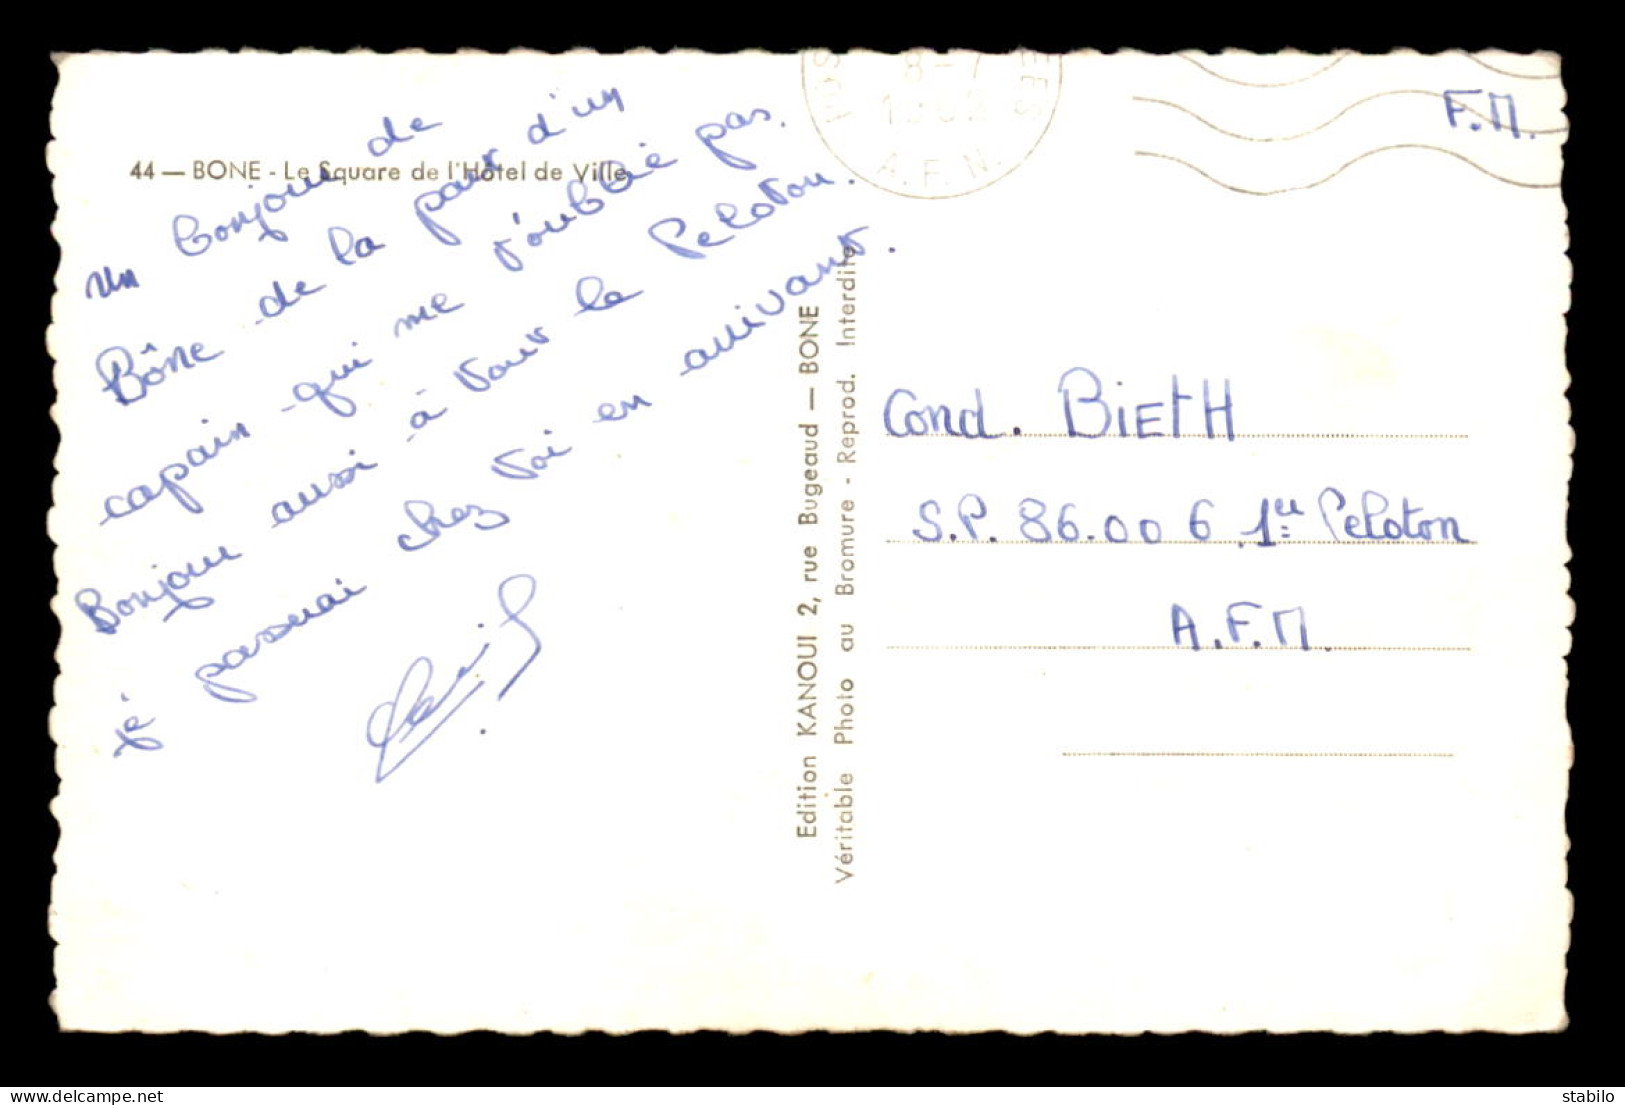 44 — BONE - Le Square de l'Hôtel de Ville
un bonjour de
Bône de la part d'un
copain qui me j'oublie pas.
Bonjour aussi à tour le Peloton.
je passerai chez toi en arrivant.
Edition KANOUI 2, rue Bugeaud — BONE
Véritable Photo au Bromure - Reprod. Interdite
8-7
A.F.N.
F.M.
Cond. BIETH
S.P. 86.006 1er Peloton
A.F.N.
delcampe.net
stabilo